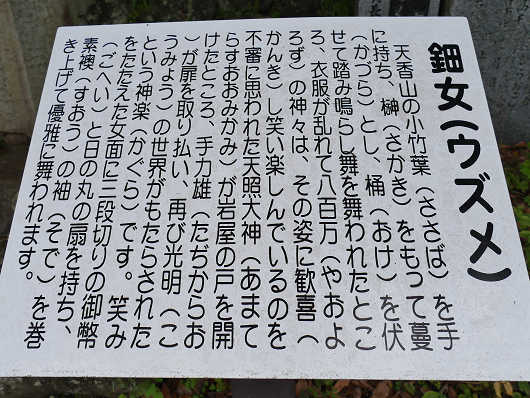 鈿女(ウズメ)
天香山の小竹葉(ささば)を手
に持ち、榊(さかき)をもって蔓
(かづら)とし、桶(おけ)を伏
せて踏み鳴らし舞を舞われたとこ
ろ、衣服が乱れて八百万(やおよ
ろず)の神々は、その姿に歓喜(
かんき)し笑い楽しんでいるのを
不審に思われた天照大神(あまて
らすおおみかみ)が岩屋の戸を開
けたところ、手力雄(たぢからお
)が扉を取り払い、再び光明(こ
うみょう)の世界がもたらされた
という神楽(かぐら)です。笑み
をたたえた女面に三段切りの御幣
(ごへい)と日の丸の扇を持ち、
素襖(すおう)の袖(そで)を巻
き上げて優雅に舞われます。